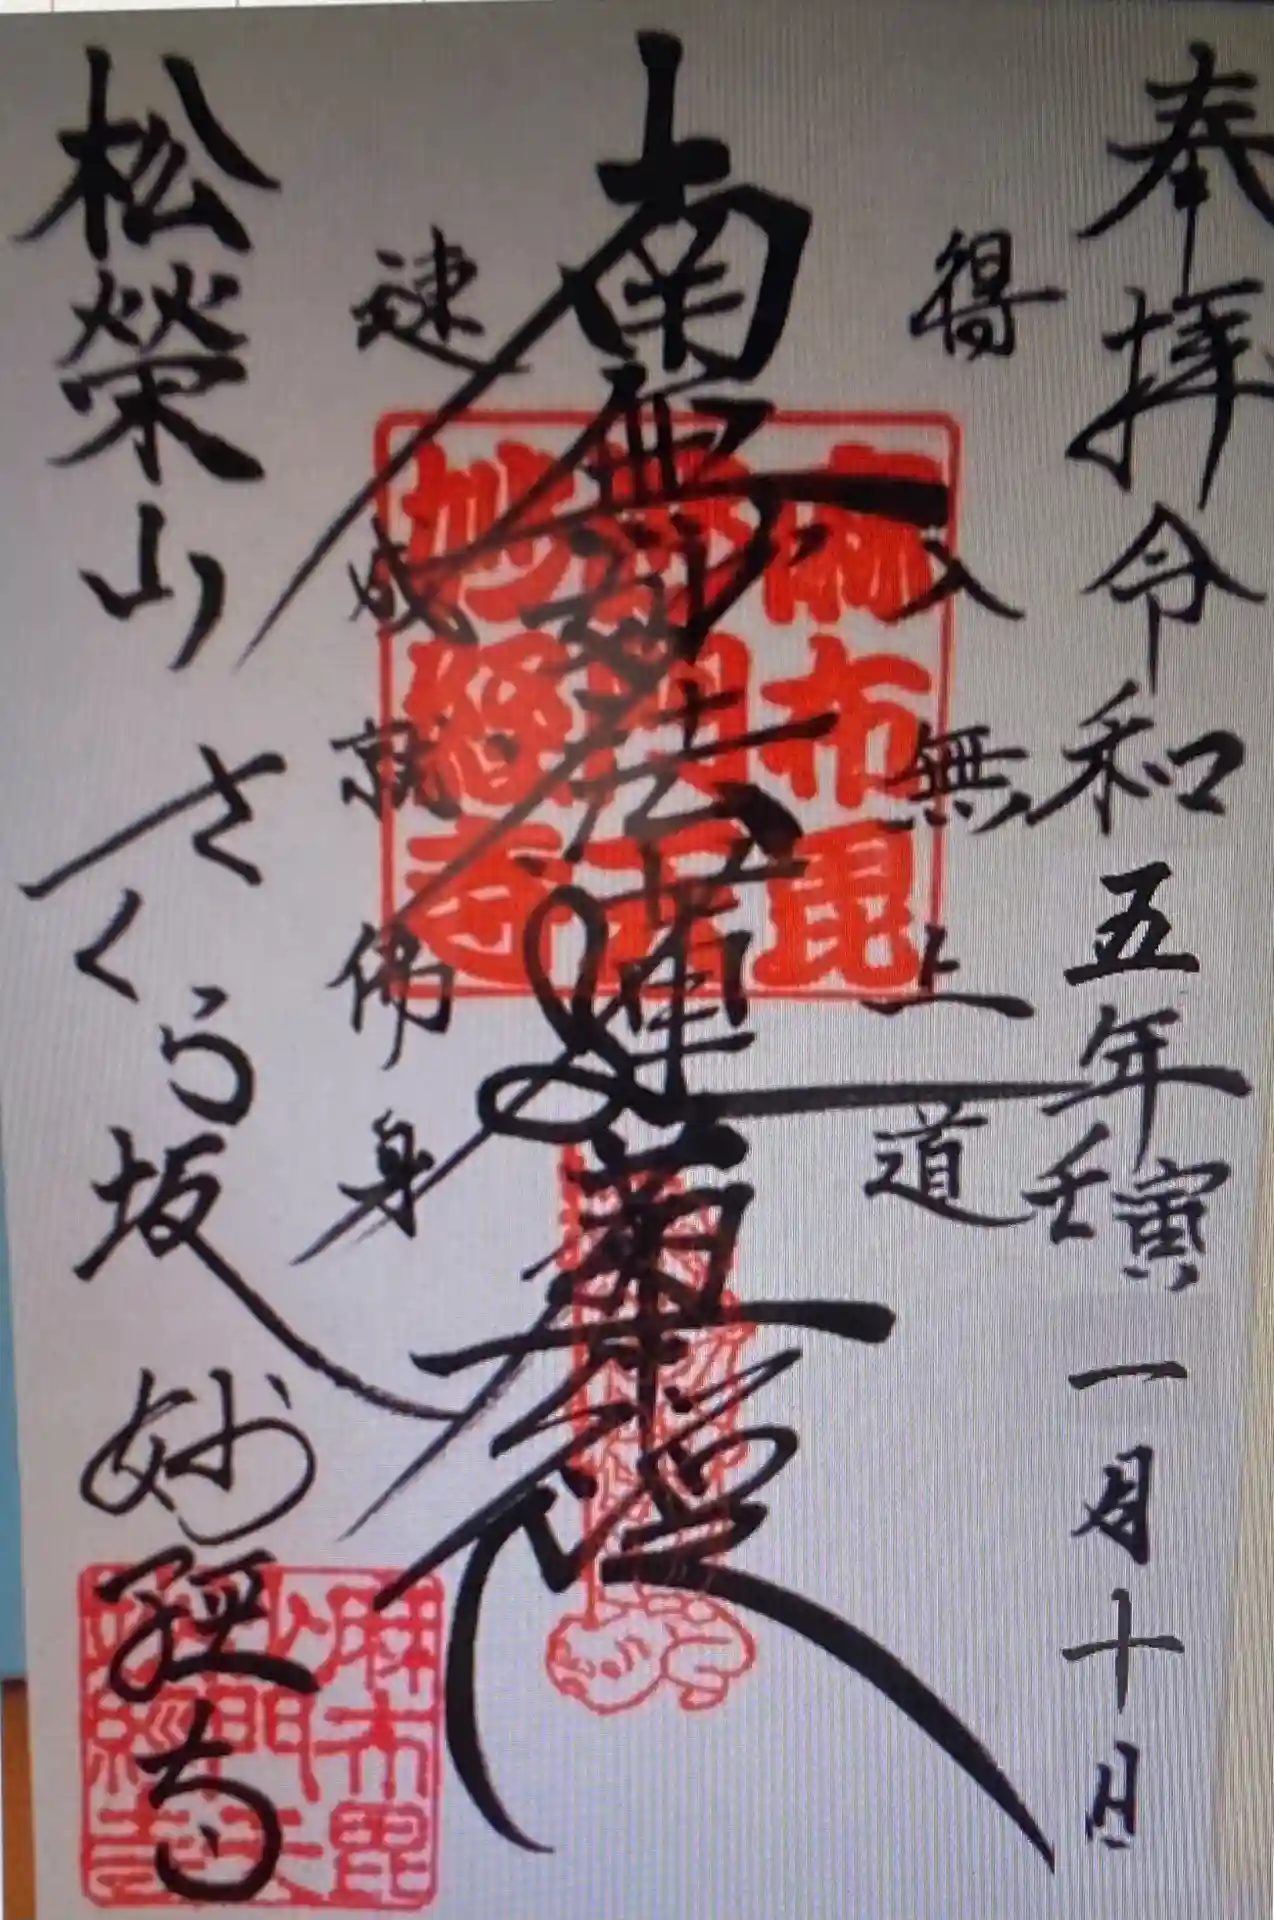 奉拝令和五年壬寅一月十日
得入無上道
南無妙法蓮華経
速成就佛身
松榮山さくら坂妙経寺
麻布毘
沙門天
妙経寺
麻布毘
沙門天
妙經寺